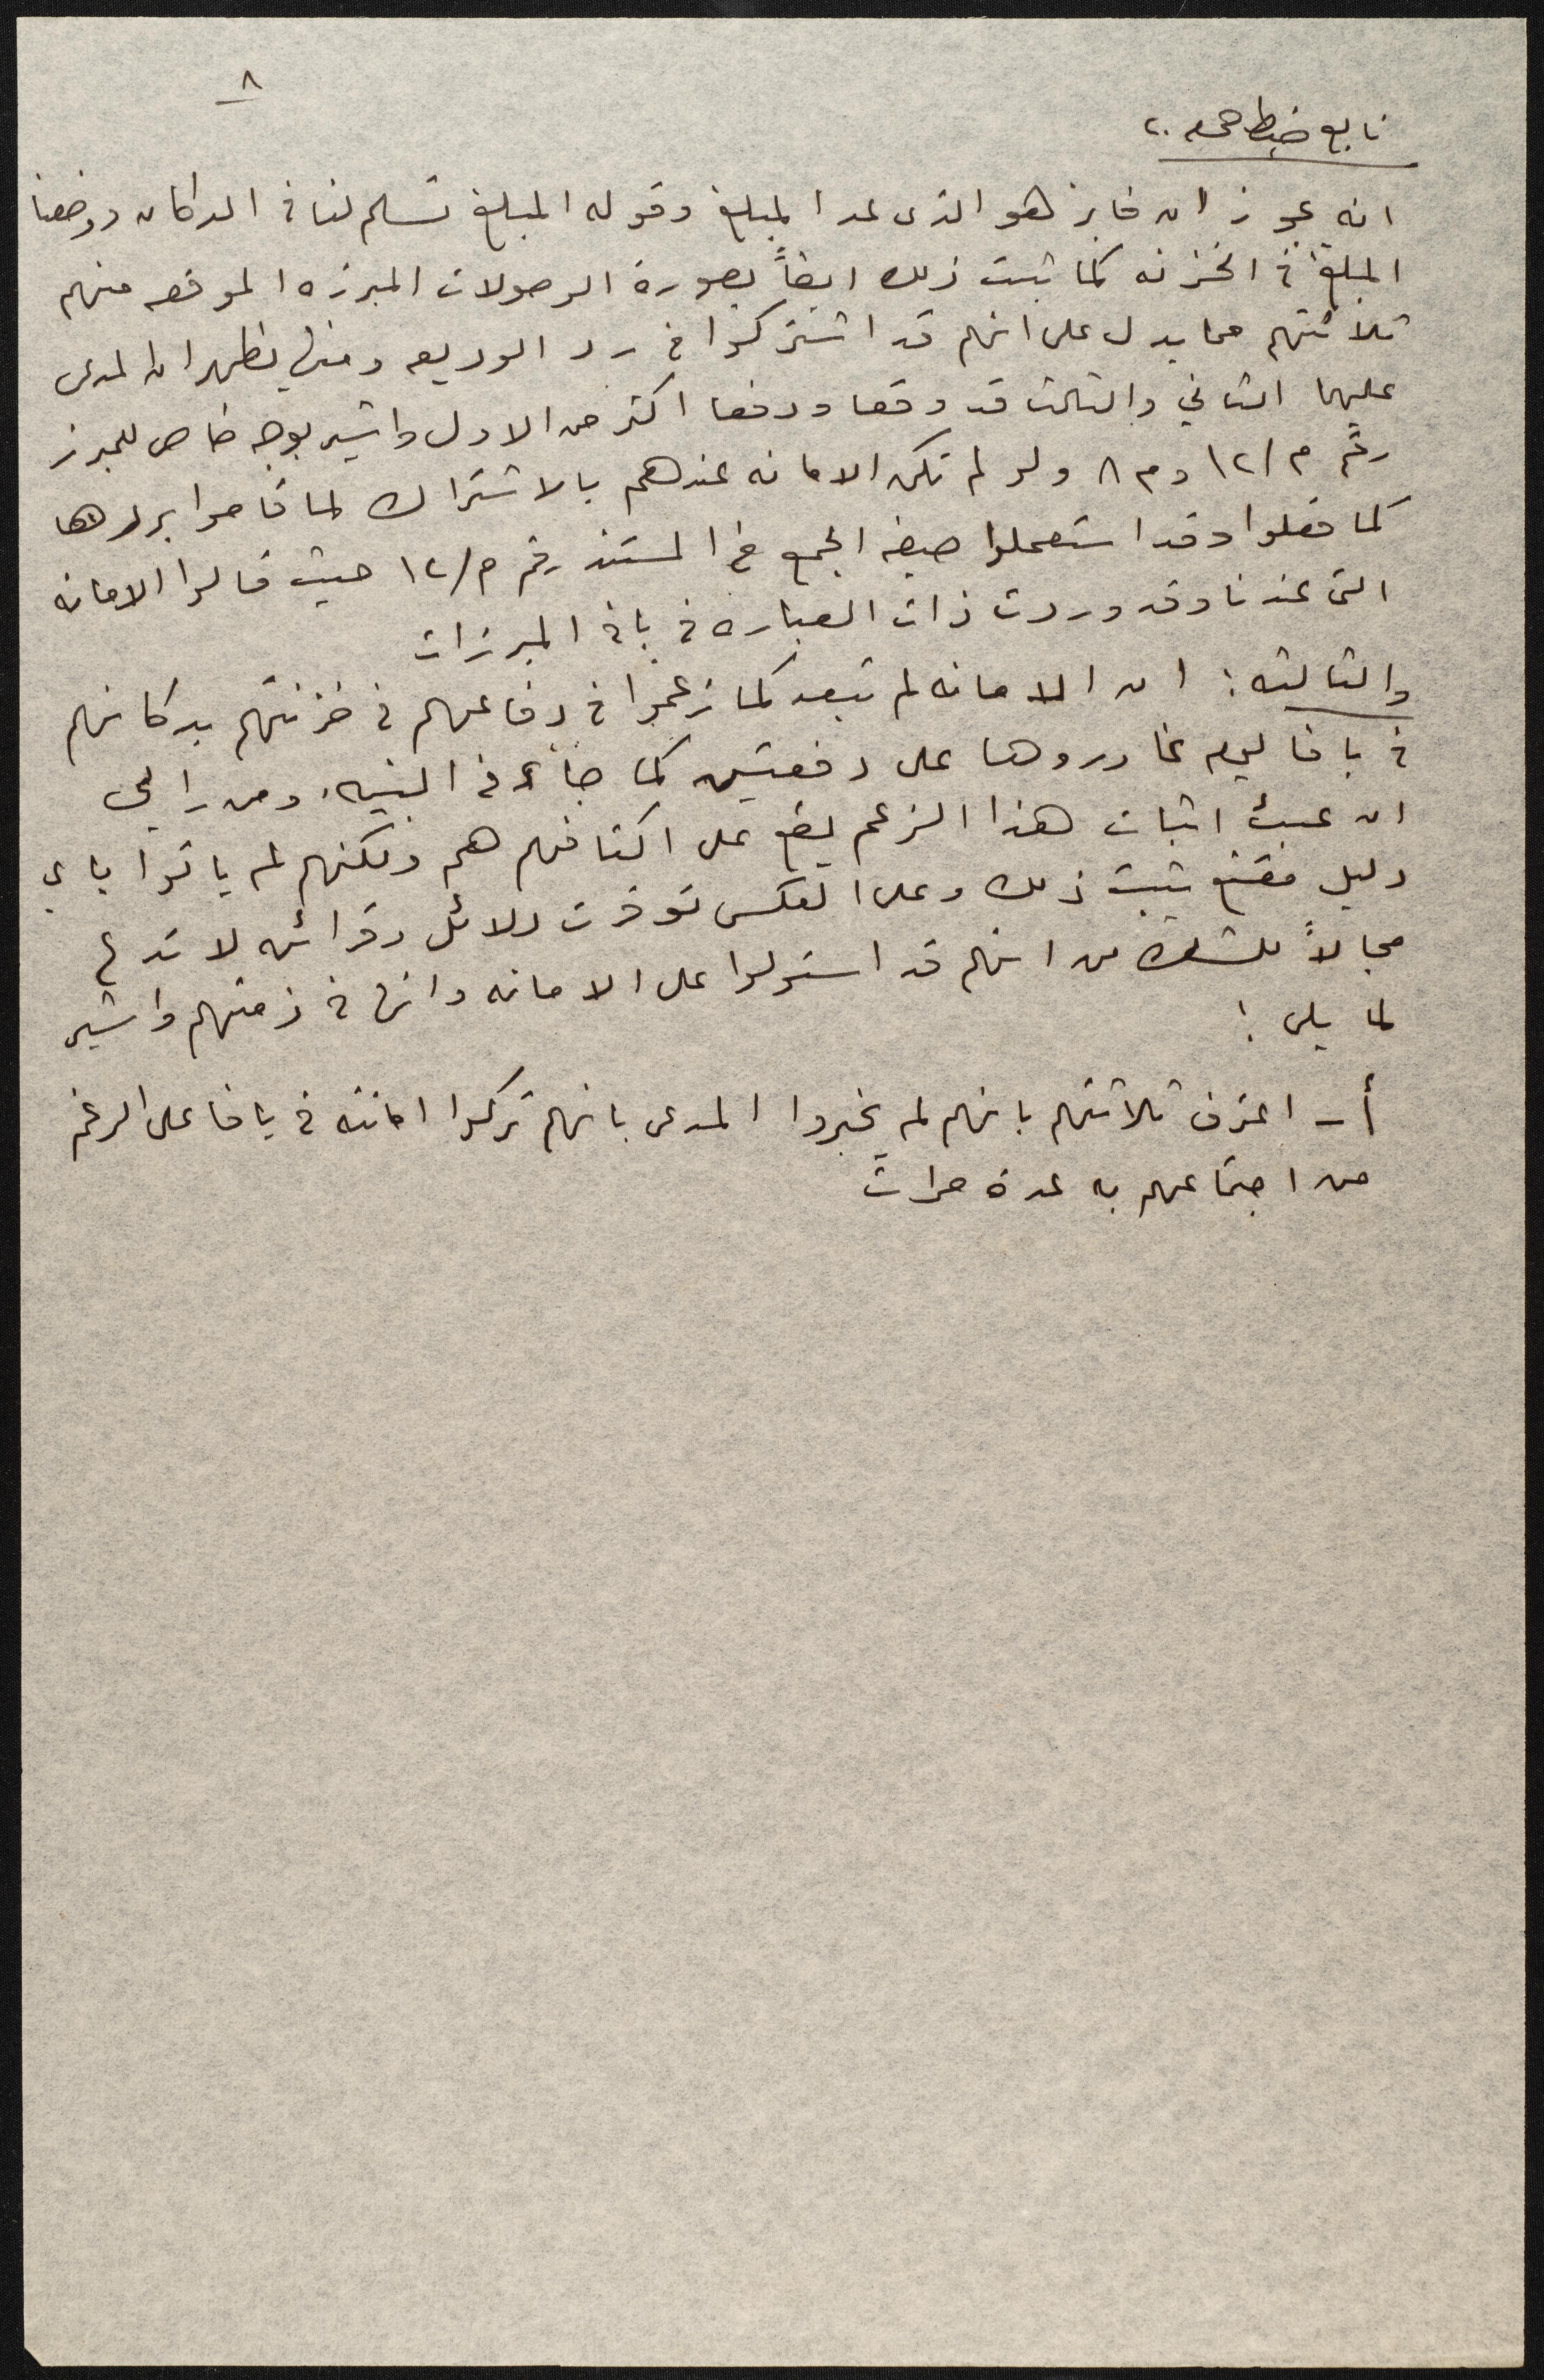 ٨
تابع ضبط ص ٢٠
انه يجوز ان فايز هو الذى عد المبلغ وقوله المبلغ تسلم لنا في الدكان ووضعنا
المبلغ في الخزنه كما ثبت ذلك ايضاً بصورة الوصولات المبرزه الموقعه منهم
ثلاثتهم مما يدل على انهم قد اشتركوا في رد الوديعه ومنها يظهر ان المدعى
عليهما الثاني والثالث قد وقعا ودفعا اكثر من الاول واشير بوجه خاص للمبرز
رقم م/١٢ وم ٨ ولو لم تكن الامانه عندهم بالاشتراك لما قاموا بردها
كما فعلوا وقد استعملوا صيغه الجمع في المستند رقم م/١٢ حيث قالوا الامانه
التى عندنا وقد وردت ذات العباره في باقي المبرزات
والثالثه : ان الامانه لم تبعد كما زعموا في دفاعهم في خزنتهم بدكانهم
في يافا ليوم غادروها على دفعتين كما جاء في البينه. ومن رايي
ان عبئ اثبات هذا الزعم يقع على اكتافهم هم ولكنهم لم ياتوا باي
دليل مقنع يثبت ذلك وعلى العكس توفرت دلائل وقرائن لا تدع
مجالاً للشك من انهم قد استولوا على الامانه وانها في ذمتهم واشير
لما يلى :
أ - اعترف ثلاثتهم بانهم لم يخبروا المدعى بانهم تركوا امانته في يافا على الرغم
من اجتماعهم به عدة مرات